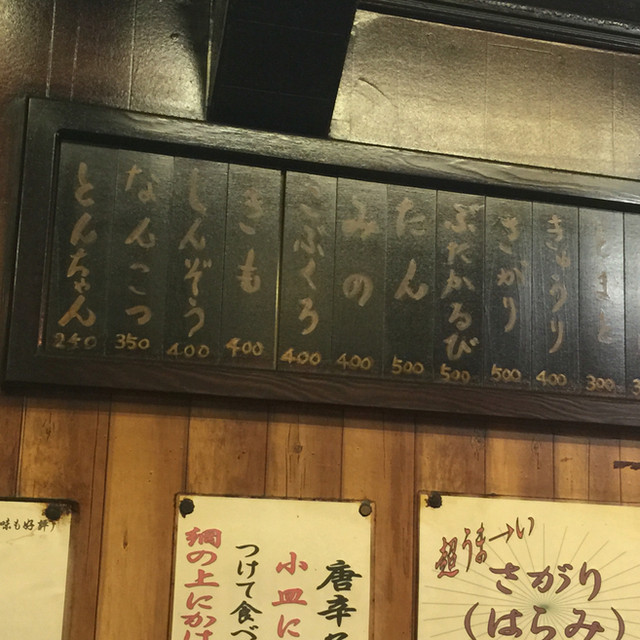 きゅうり
400
さがり
500
ぶたかるび
500
たん
500
みの
400
こぶくろ
400
きも
400
しんぞう
400
なんこつ
350
とんちゃん
240
300
超うま→い
さがり
(はらみ)
唐辛
小皿に
つけて食べ
網の上にかけ
味も好評